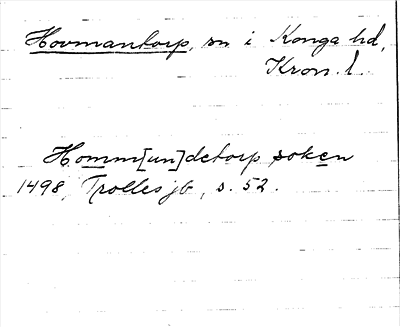 Hovmantorp, sn i Konga hd,
Kron. l.
Homm[un]detorp soken
1498, Trolles jb, s. 52.